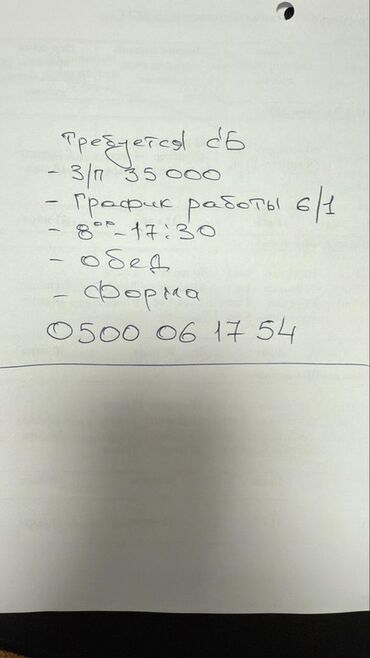 Требуется СБ
- З/п 35000
- График работы 6/1
- 8⁰⁰-17:30
- обед
- Форма
0500 06 17 54